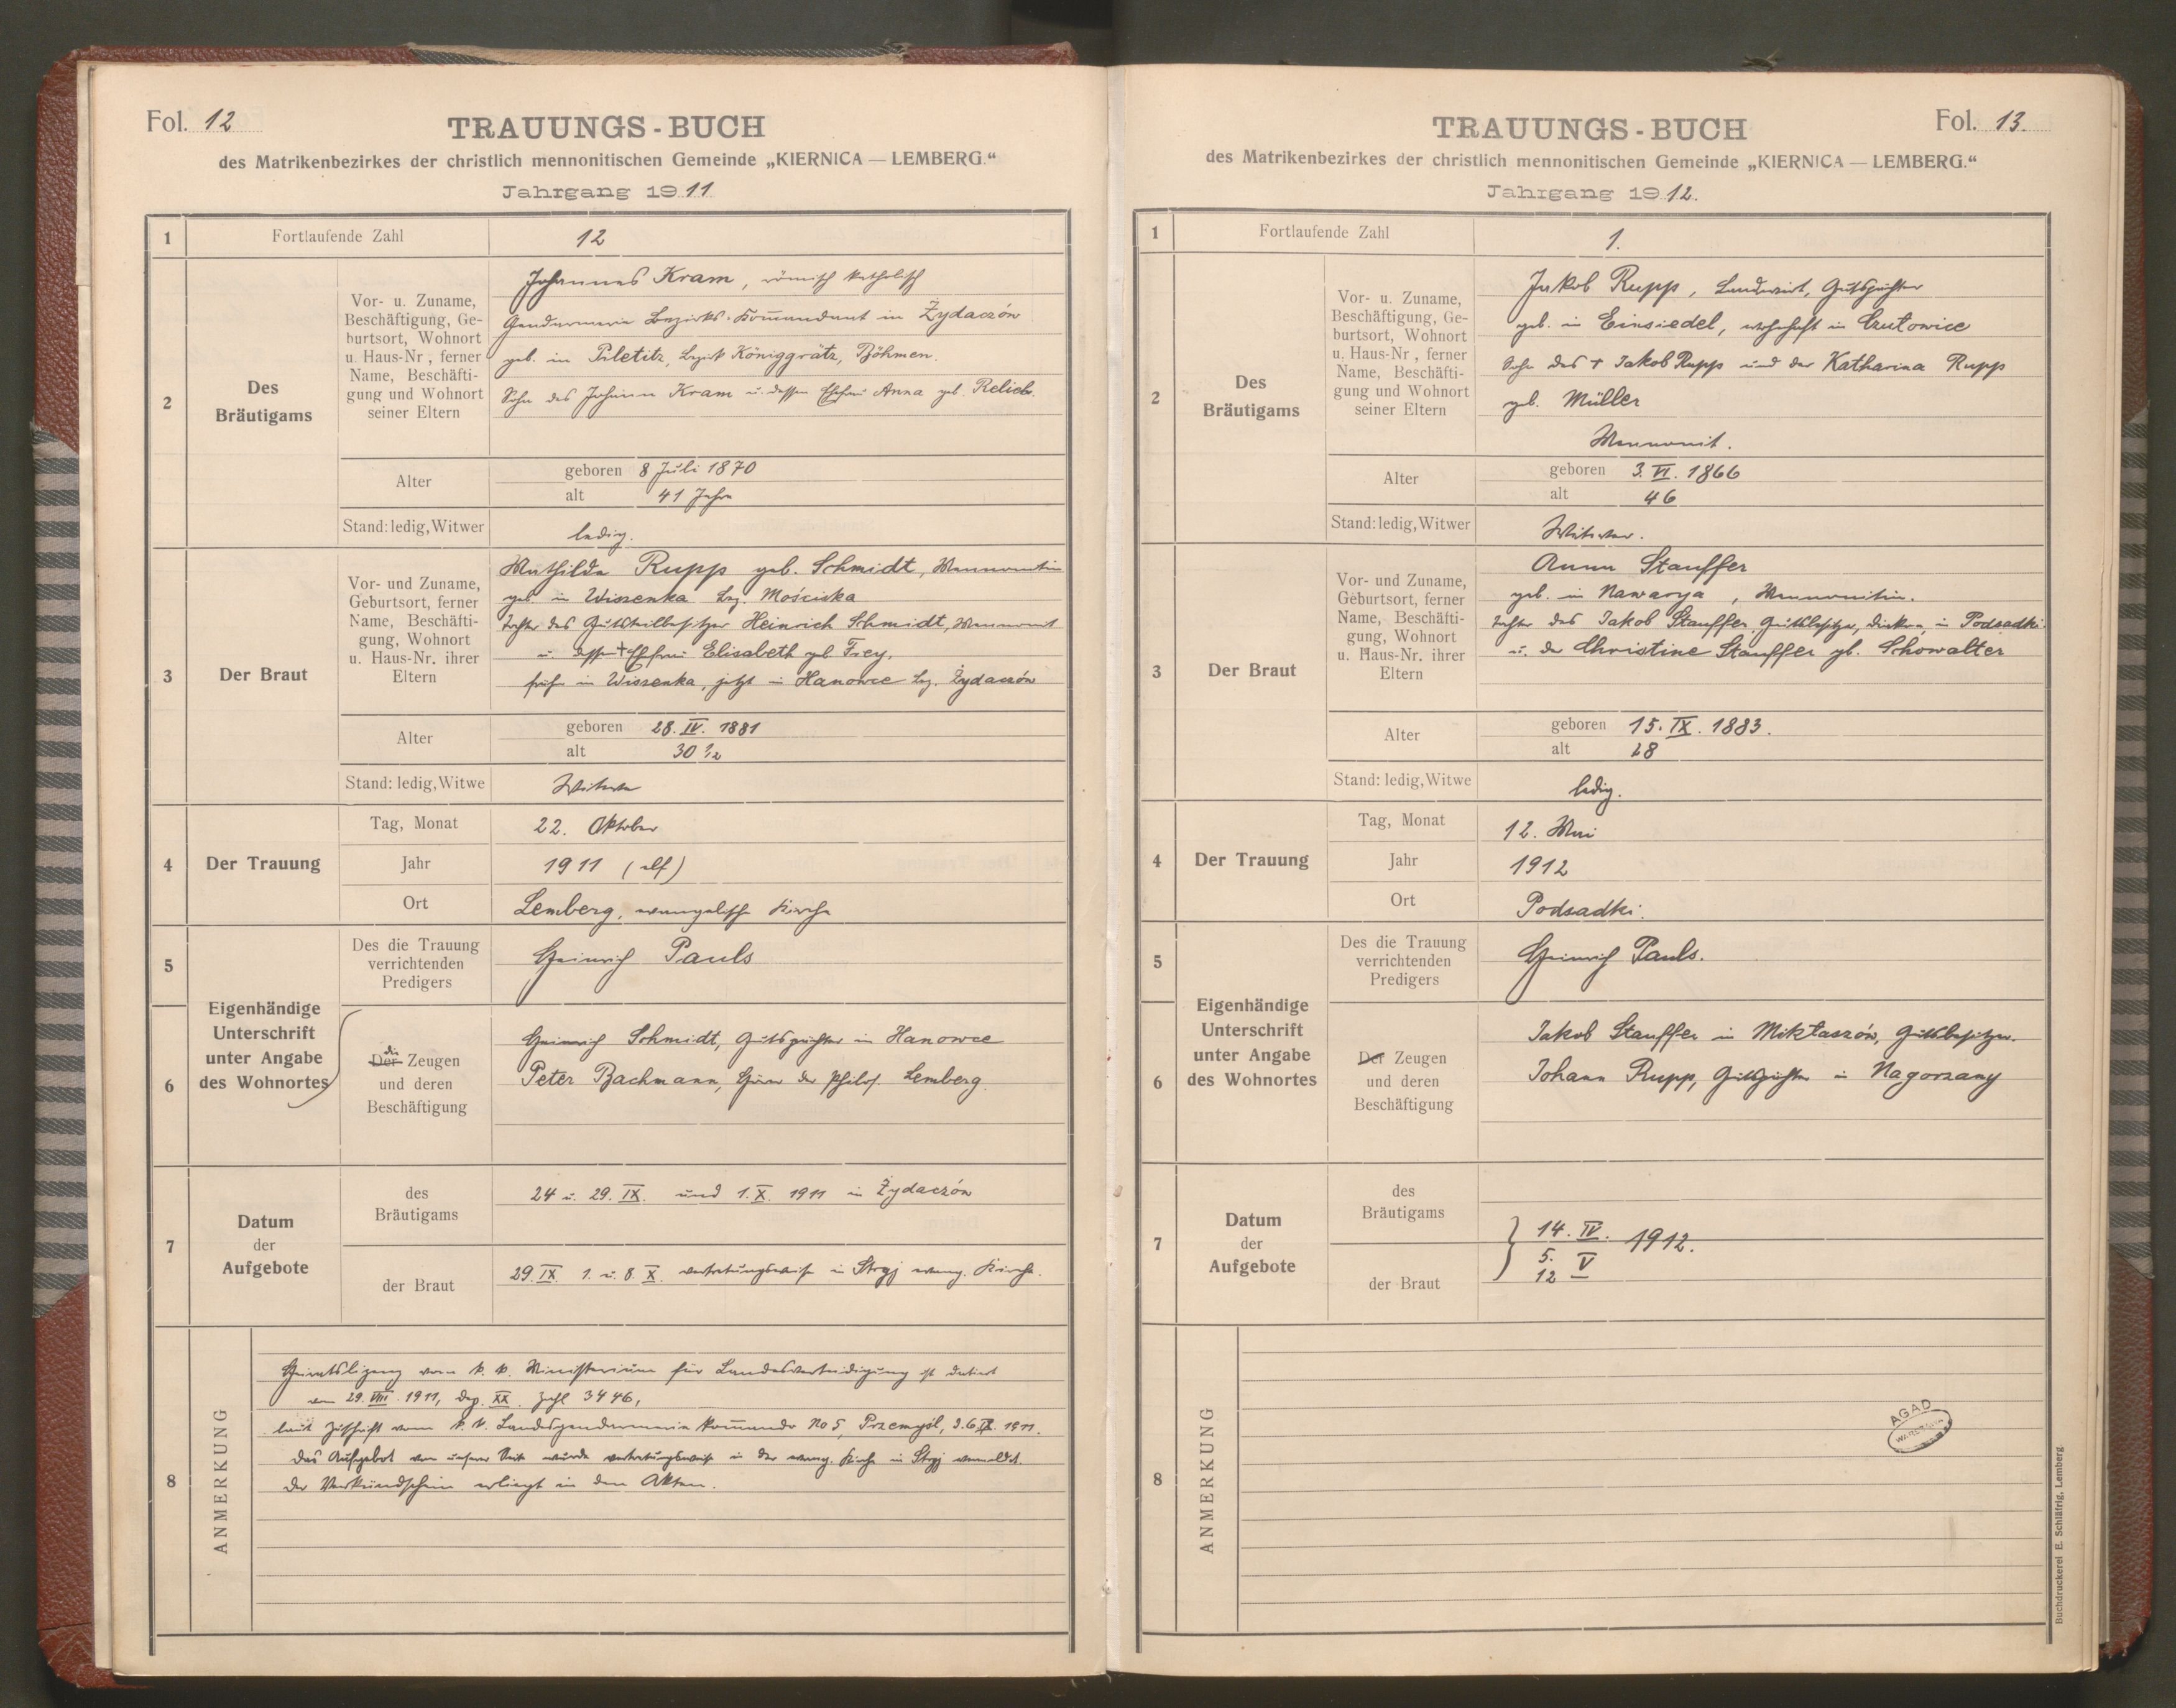 Fol. 12
TRAUUNGS-BUCH
des Matrikenbezirkes der christlich mennonitischen Gemeinde „KIERNICA — LEMBERG.“
Jahrgang 1911
1 Fortlaufende Zahl 12
2 Des Bräutigams
Vor- u. Zuname,
Beschäftigung, Ge-
burtsort, Wohnort
u. Haus-Nr, ferner
Name, Beschäfti-
gung und Wohnort
seiner Eltern
Johannes Kram, römisch katholisch
Gendarmerie Bezirks-Kommandant in Żydaczów
geb. in Piletitz, Bezirk Königgrätz, Böhmen.
Sohn des Johann Kram u. dessen Ehefrau Anna geb. Relich.
Alter
geboren 8 Juli 1870
alt 41 Jahre
Stand: ledig, Witwer ledig.
3 Der Braut
Vor- und Zuname,
Geburtsort, ferner
Name, Beschäfti-
gung, Wohnort
u. Haus-Nr. ihrer
Eltern
Mathilde Rupp geb. Schmidt, Mennonitin
geb. in Wiszenka Bez. Mościska
Tochter des Gutsteilbesitzer Heinrich Schmidt, Mennonit
u. dessen + Ehefrau Elisabeth geb. Frey,
früher in Wiszenka, jetzt in Hanowce Bez. Żydaczów
Alter
geboren 28. IV. 1881
alt 30 ½
Stand: ledig, Witwe Witwe
4 Der Trauung
Tag, Monat 22. Oktober
Jahr 1911 (elf)
Ort Lemberg, evangelische Kirche
5 Des die Trauung
verrichtenden
Predigers
Heinrich Pauls
6 Eigenhändige
Unterschrift
unter Angabe
des Wohnortes
die
Der Zeugen
und deren
Beschäftigung
Heinrich Schmidt, Gutspächter in Hanowce
Peter Bachmann, Hörer der Philos. Lemberg.
7 Datum
der
Aufgebote
des
Bräutigams
24 u. 29. IX. und 1. X. 1911 in Żydaczów
der Braut 29. IX. 1. u. 8. X. vertretungsweise in Stryj evang. Kirche.
8 ANMERKUNG
Heiratslizenz vom k. k. Ministerium für Landesverteidigung ist datiert
vom 29. VIII. 1911, Dep. XX. Zahl 3446,
laut Zuschrift vom k. k. Landesgendarmerie Kommando No 5, Przemyśl, d. 6 IX. 1911.
Das Aufgebot von unserer Seite wurde vertretungsweise in der evang. Kirche in Stryj vermeldet.
Der Verkündschein erliegt in den Akten.
Fol. 13.
TRAUUNGS-BUCH
des Matrikenbezirkes der christlich mennonitischen Gemeinde „KIERNICA — LEMBERG.“
Jahrgang 1912.
1 Fortlaufende Zahl 1.
2 Des Bräutigams
Vor- u. Zuname,
Beschäftigung, Ge-
burtsort, Wohnort
u. Haus-Nr, ferner
Name, Beschäfti-
gung und Wohnort
seiner Eltern
Jakob Rupp, Landwirt, Gutspächter
geb. in Einsiedel, wohnhaft in Czutowice
Sohn des + Jakob Rupp und der Katharina Rupp
geb. Müller
Mennonit.
Alter
geboren 3. VI. 1866
alt 46
Stand: ledig, Witwer Witwer.
3 Der Braut
Vor- und Zuname,
Geburtsort, ferner
Name, Beschäfti-
gung, Wohnort
u. Haus-Nr. ihrer
Eltern
Anna Stauffer
geb. in Nawarya, Mennonitin.
Tochter des Jakob Stauffer, Gutsbesitzer, Diakon, in Podsadki.
u. der Christine Stauffer gb. Schowalter
Alter
geboren 15. IX. 1883.
alt 28
Stand: ledig, Witwe ledig.
4 Der Trauung
Tag, Monat 12. Mai
Jahr 1912
Ort Podsadki.
5 Des die Trauung
verrichtenden
Predigers
Heinrich Pauls.
6 Eigenhändige
Unterschrift
unter Angabe
des Wohnortes
Der Zeugen
und deren
Beschäftigung
Jakob Stauffer in Mikłaszów, Gutsbesitzer.
Johann Rupp, Gutspächter in Nagorzany
7 Datum
der
Aufgebote
des
Bräutigams
der Braut
14. IV. 1912.
5. V
12 –
8 ANMERKUNG
AGAD
WARSZAWA
Buchdruckerei E. Schläfrig, Lemberg.